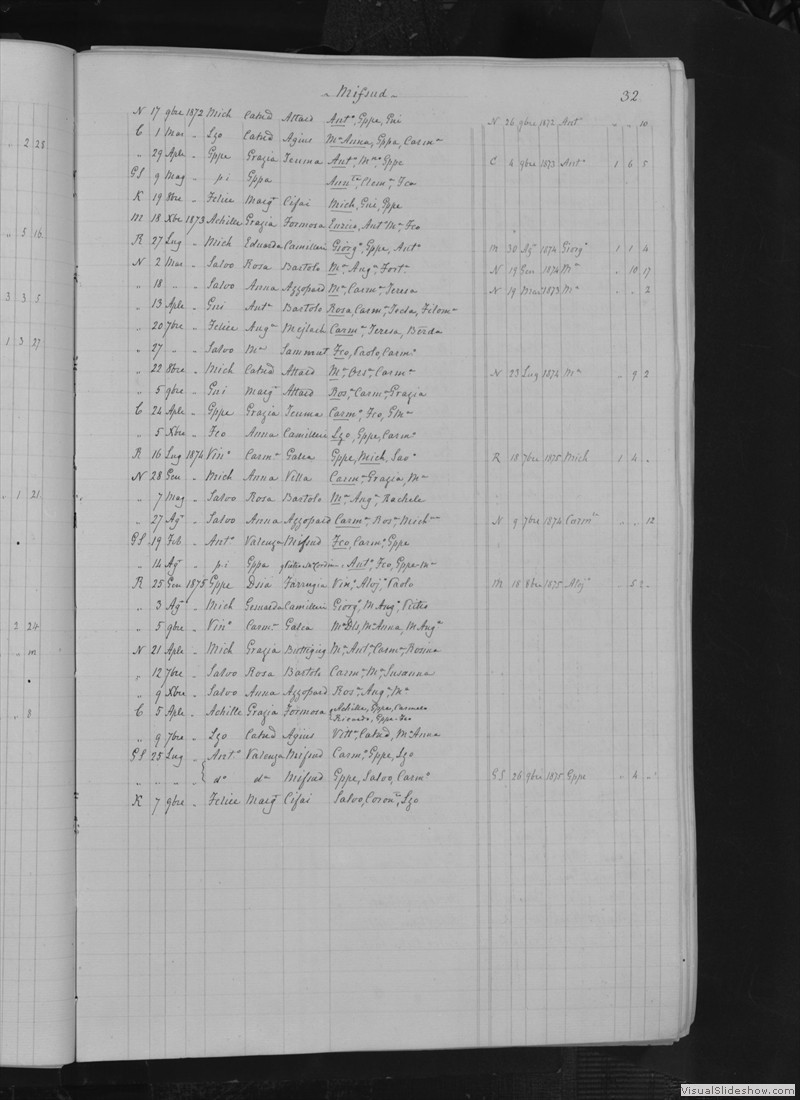 - Mifsud - 32
N 17 9bre 1872 Mich Catnd Attard Antº, Gppe, Gni N 26 9bre 1872 Antº " " 10
C 1 Mar " Lzo Catnd Agius Mª Anna, Gppa, Carmª
2 28
" 29 Aple " Gppe Grazia Antª, Mªª, Gppe C 4 9bre 1873 Antª 1 6 5
GS 9 Mag " pi Gppa Fca
K 19 8bre " Felice Margª Cifai Mich, Gni, Gppe
M 18 Xbre 1873 Achille Grazia Formosa Enrico, Antº Mª, Fco
" 5 16
R 27 Lug " Mich Eduarda Camilleri Giorgº, Gppe, Antº M 30 Agº 1874 Giorgº 1 1 4
N 2 Mar " Salvo Rosa Bartolo Mª, Angª, Fortª N 19 Gen 1874 Mª " 10 17
" 18 " " Salvo Anna Azzopard Mª, Carmª, Teresa N 19 Mar 1873 Mª " " 2
3 3 5
" 13 Aple " Gni Antª Bartolo Rosa, Carmª, Filomª
" 20 7bre " Felice Angª Mejlach Carmª, Teresa,
1 3 27
" 27 " " Salvo Mª Sammut Fco, Paolo, Carmº
" 22 8bre " Mich Catnd Attard Mª, Carmª N 23 Lug 1874 Mª " 9 2
" 5 9bre " Gni Margª Attard Rosª, Carmª, Grazia
C 24 Aple " Gppe Grazia Carmº, Fco,
" 5 Xbre " Fco Anna Camilleri Lzo, Gppe, Carmº
R 16 Lug 1874 Vinº Carmª Galea Gppe, Mich, Salº R 18 7bre 1875 Mich 1 4 "
N 28 Gen " Mich Anna Villa Carmª, Grazia, Mª
" 1 21
" 7 Mag " Salvo Rosa Bartolo Mª, Angª, Rachele
" 27 Agº " Salvo Anna Azzopard Carmª, Rosª, Michª N 9 7bre 1874 Carmª " " 12
GS 19 Feb " Antº Valenza Mifsud Fco, Carmº, Gppe
" 14 Agº " pi Gppa Antº, Fco, Gppe Mª
R 25 Gen 1875 Gppe Farrugia Vinº, Alojº, Paolo M 18 8bre 1875 Alojº " 5 2
" 3 Agº " Mich Camilleri Giorgº, M Angº,
2 24
" 5 9bre " Vinº Carmª Galea Mª Mª Anna, M Angª
N 21 Aple " Mich Grazia Buttigieg Mª, Antª, Carmª, Rosina
" m
" 12 7bre " Salvo Rosa Bartolo Carmª, Mª, Susanna
" 9 Xbre " Salvo Anna Azzopard Rosª, Angª, Mª
C 5 Aple " Achille Grazia Formosa Achille, Gppa, Carmela
" 8
" 9 7bre " Lzo Catnd Agius Vittª, Catnd, Mª Anna
GS 25 Lug " Antº Valenza Mifsud Carmº, Gppe, Lzo
" " " " dº dª Mifsud Gppe, Salvo, Carmº GS 26 9bre 1875 Gppe " 4 "
K 7 9bre " Felice Margª Cifai Salvo, Lzo
VisualSlideshow.com